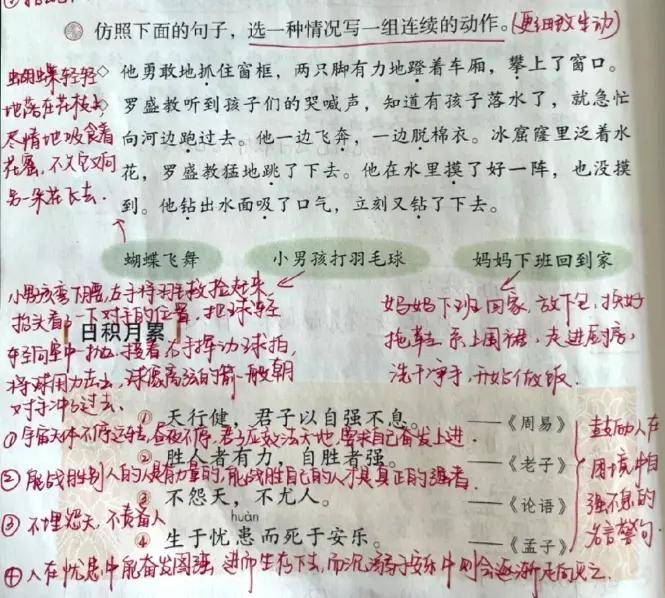 仿照下面的句子，选一种情况写一组连续的动作。(更细致生动)
◇ 他勇敢地抓住窗框，两只脚有力地蹬着车厢，攀上了窗口。
◇ 罗盛教听到孩子们的哭喊声，知道有孩子落水了，就急忙
向河边跑过去。他一边飞奔，一边脱棉衣。冰窟窿里泛着水
花，罗盛教猛地跳了下去。他在水里摸了好一阵，也没摸
到。他钻出水面吸了口气，立刻又钻了下去。
蝴蝶轻轻
地落在花枝上
尽情地吸食着
花蜜，不久它又向
另一朵花飞去.
蝴蝶飞舞 小男孩打羽毛球 妈妈下班回到家
小男孩弯下腰,左手将羽毛球捡起来
抬头看了一下对手的位置,把球轻
轻向空中一抛,接着右手挥动球拍,
将球用力击出,球像离弦的箭一般朝
对手冲了过去.
妈妈下班回家,放下包,换好
拖鞋,系上围裙,走进厨房,
洗干净手,开始做饭.
日积月累
① 天行健，君子以自强不息。 ——《周易》
①宇宙天体不停运转,昼夜不停,君子应效法天地,要求自己奋发上进.
② 胜人者有力，自胜者强。 ——《老子》
②能战胜别人的人是有力量的,能战胜自己的人才是真正的强者.
③ 不怨天，不尤人。 ——《论语》
③不埋怨天,不责备人
huàn
④ 生于忧患而死于安乐。 ——《孟子》
④人在忧患中能奋发图强,进而生存下去,而沉溺于安乐中则会逐渐走向灭亡.
鼓励人在
困境中自
强不息的
名言警句